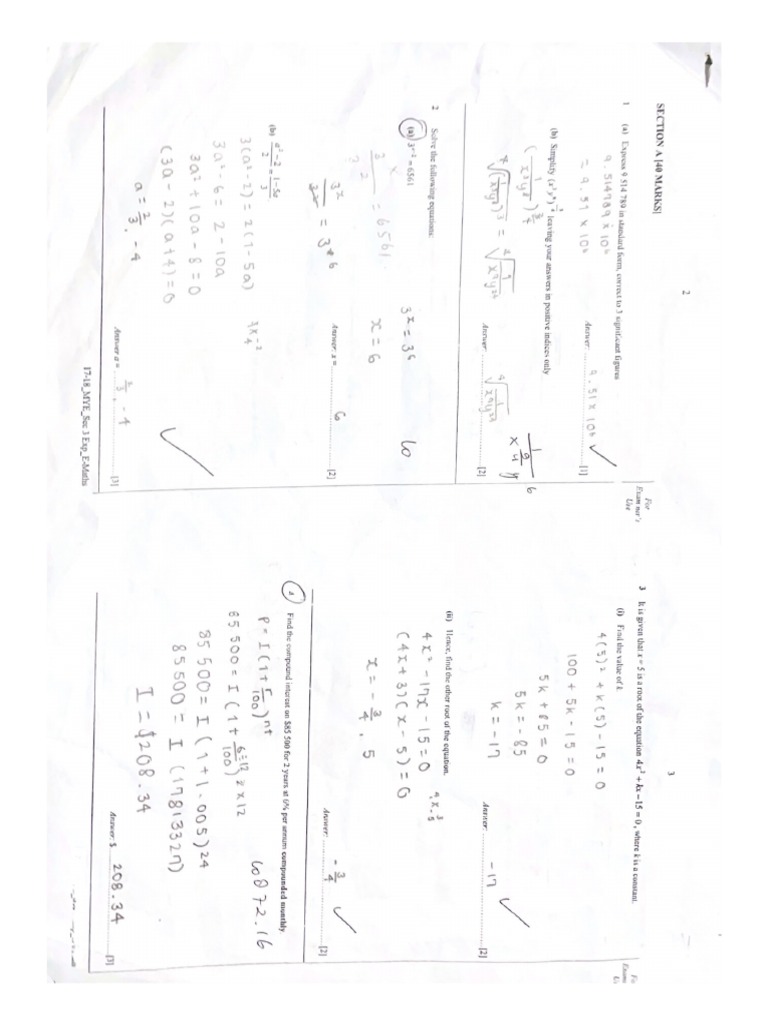 2
SECTION A [40 MARKS]
For
Examiner's
Use
1 (a) Express 9 514 789 in standard form, correct to 3 significant figures
9.514789 × 10⁶
= 9.51 × 10⁶
Answer: 9.51 × 10⁶ ✓ [1]
leaving your answers in positive indices only
Answer: [2]
2 Solve the following equations:
= 6561
3ˣ = 3⁶
x = 6
Answer: x = 6 [2]
(b) a² − 2 / 2 = 1 − 5a / 3
3(a² − 2) = 2(1 − 5a)
3a² − 6 = 2 − 10a
3a² + 10a − 8 = 0
(3a − 2)(a + 4) = 0
a = 2/3, −4
Answer a = 2/3, −4 [3]
17-18_MYE_Sec 3 Exp_E-Maths
3
3 It is given that x = 5 is a root of the equation 4x² + kx − 15 = 0, where k is a constant.
(i) Find the value of k
4(5)² + k(5) − 15 = 0
100 + 5k − 15 = 0
5k + 85 = 0
5k = −85
k = −17
Answer: −17 ✓ [2]
(ii) Hence, find the other root of the equation.
4x² − 17x − 15 = 0
(4x + 3)(x − 5) = 0
x = − 3/4, 5
Answer: − 3/4 ✓ [2]
Find the compound interest on $85 500 for 2 years at 6% per annum compounded monthly
P = I (1 + r/100)ⁿᵗ
85 500 = I (1 + 6÷12/100)² ˣ ¹²
85 500 = I (1 + 1.005)²⁴
85500 = I (17813327)
I = $208.34
10872.16
Answer: $ 208.34 [3]